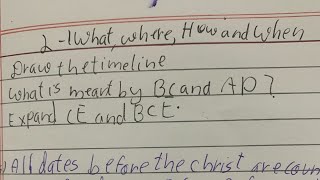 2-1 What, where, How and When
Draw the timeline
What is meant by BC and AD?
Expand CE and BCE.
All dates before the christ are coun